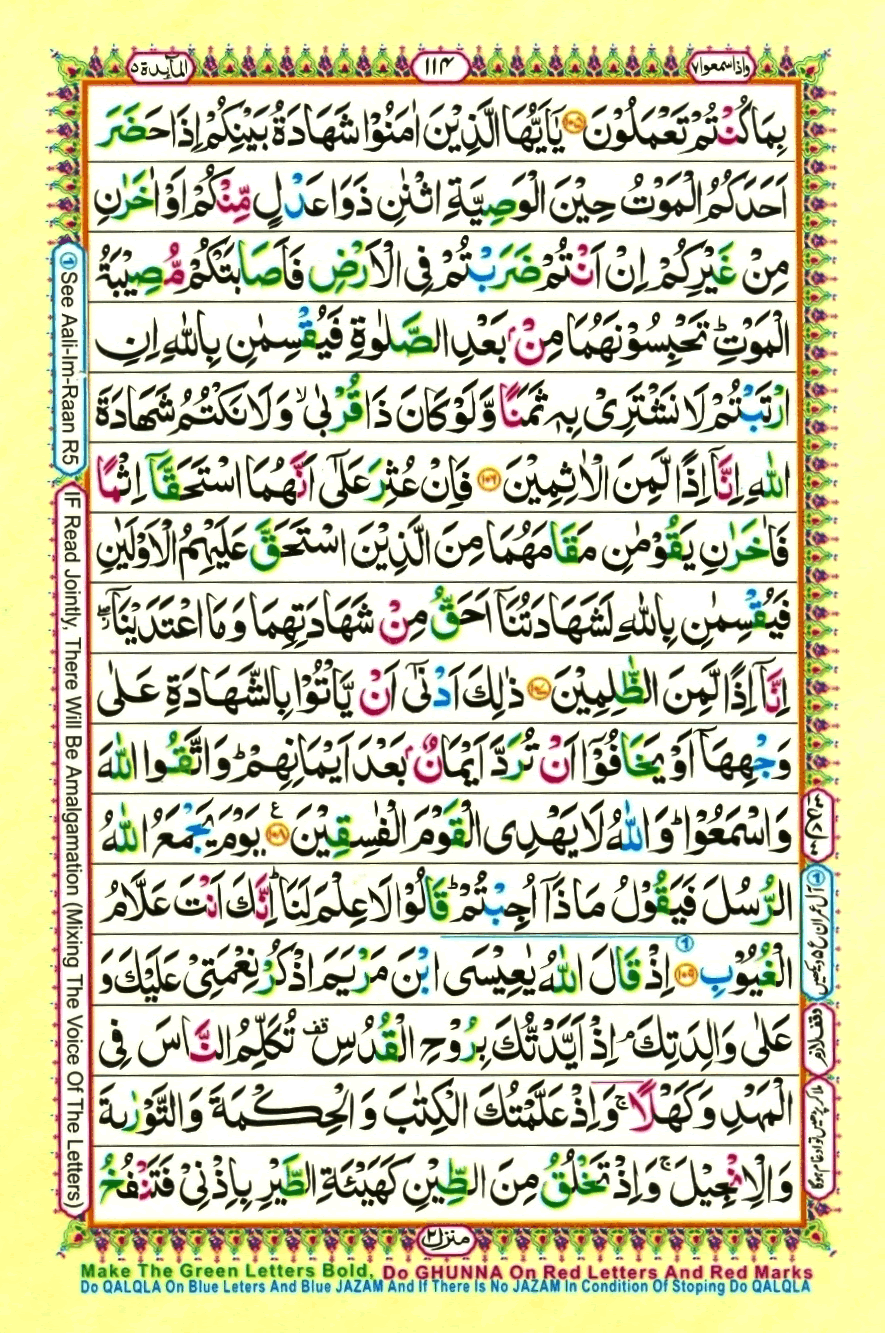 المآىدة ٥
١١٤
واذاسمعوا ٧
بِمَا كُنْتُمْ تَعْمَلُوْنَ ۝۱۰۵ يٰۤاَيُّهَا الَّذِيْنَ اٰمَنُوْا شَهَادَةُ بَيْنِكُمْ اِذَا حَضَرَ
اَحَدَكُمُ الْمَوْتُ حِيْنَ الْوَصِيَّةِ اثْنٰنِ ذَوَا عَدْلٍ مِّنْكُمْ اَوْ اٰخَرٰنِ
مِنْ غَيْرِكُمْ اِنْ اَنْتُمْ ضَرَبْتُمْ فِى الْاَرْضِ فَاَصَابَتْكُمْ مُّصِيْبَةُ
الْمَوْتِ ؕ تَحْبِسُوْنَهُمَا مِنْۢ بَعْدِ الصَّلٰوةِ فَيُقْسِمٰنِ بِاللّٰهِ اِنِ
ارْتَبْتُمْ لَا نَشْتَرِىْ بِهٖ ثَمَنًا وَّلَوْ كَانَ ذَا قُرْبٰى ۙ وَلَا نَكْتُمُ شَهَادَةَ
اللّٰهِ اِنَّاۤ اِذًا لَّمِنَ الْاٰثِمِيْنَ ۝۱۰۶ فَاِنْ عُثِرَ عَلٰۤى اَنَّهُمَا اسْتَحَقَّاۤ اِثْمًا
فَاٰخَرٰنِ يَقُوْمٰنِ مَقَامَهُمَا مِنَ الَّذِيْنَ اسْتَحَقَّ عَلَيْهِمُ الْاَوْلَيٰنِ
فَيُقْسِمٰنِ بِاللّٰهِ لَشَهَادَتُنَاۤ اَحَقُّ مِنْ شَهَادَتِهِمَا وَمَا اعْتَدَيْنَاۤ ۖ
اِنَّاۤ اِذًا لَّمِنَ الظّٰلِمِيْنَ ۝۱۰۷ ذٰلِكَ اَدْنٰۤى اَنْ يَّاْتُوْا بِالشَّهَادَةِ عَلٰى
وَجْهِهَاۤ اَوْ يَخَافُوْۤا اَنْ تُرَدَّ اَيْمَانٌۢ بَعْدَ اَيْمَانِهِمْ ؕ وَاتَّقُوا اللّٰهَ
وَاسْمَعُوْا ؕ وَاللّٰهُ لَا يَهْدِى الْقَوْمَ الْفٰسِقِيْنَ ۝۱۰۸ ع يَوْمَ يَجْمَعُ اللّٰهُ
الرُّسُلَ فَيَقُوْلُ مَاذَاۤ اُجِبْتُمْ ؕ قَالُوْا لَا عِلْمَ لَنَا ؕ اِنَّكَ اَنْتَ عَلَّامُ
الْغُيُوْبِ ۝۱۰۹ اِذْ قَالَ اللّٰهُ يٰعِيْسَى ابْنَ مَرْيَمَ اذْكُرْ نِعْمَتِىْ عَلَيْكَ وَ
عَلٰى وَالِدَتِكَ ۘ اِذْ اَيَّدْتُّكَ بِرُوْحِ الْقُدُسِ قف تُكَلِّمُ النَّاسَ فِى
الْمَهْدِ وَكَهْلًا ۚ وَاِذْ عَلَّمْتُكَ الْكِتٰبَ وَالْحِكْمَةَ وَالتَّوْرٰىةَ
وَالْاِنْجِيْلَ ۚ وَاِذْ تَخْلُقُ مِنَ الطِّيْنِ كَهَيْئَةِ الطَّيْرِ بِاِذْنِىْ فَتَنْفُخُ
① See Aali-Im-Raan R5
IF Read Jointly, There Will Be Amalgamation (Mixing The Voice Of The Letters)
آل عمران ع ۵ دیکھیں
وقف لازم
ملا کر پڑھیں تو ادغام ہوگا
منزل ٢
Make The Green Letters Bold, Do GHUNNA On Red Letters And Red Marks
Do QALQLA On Blue Leters And Blue JAZAM And If There Is No JAZAM In Condition Of Stoping Do QALQLA